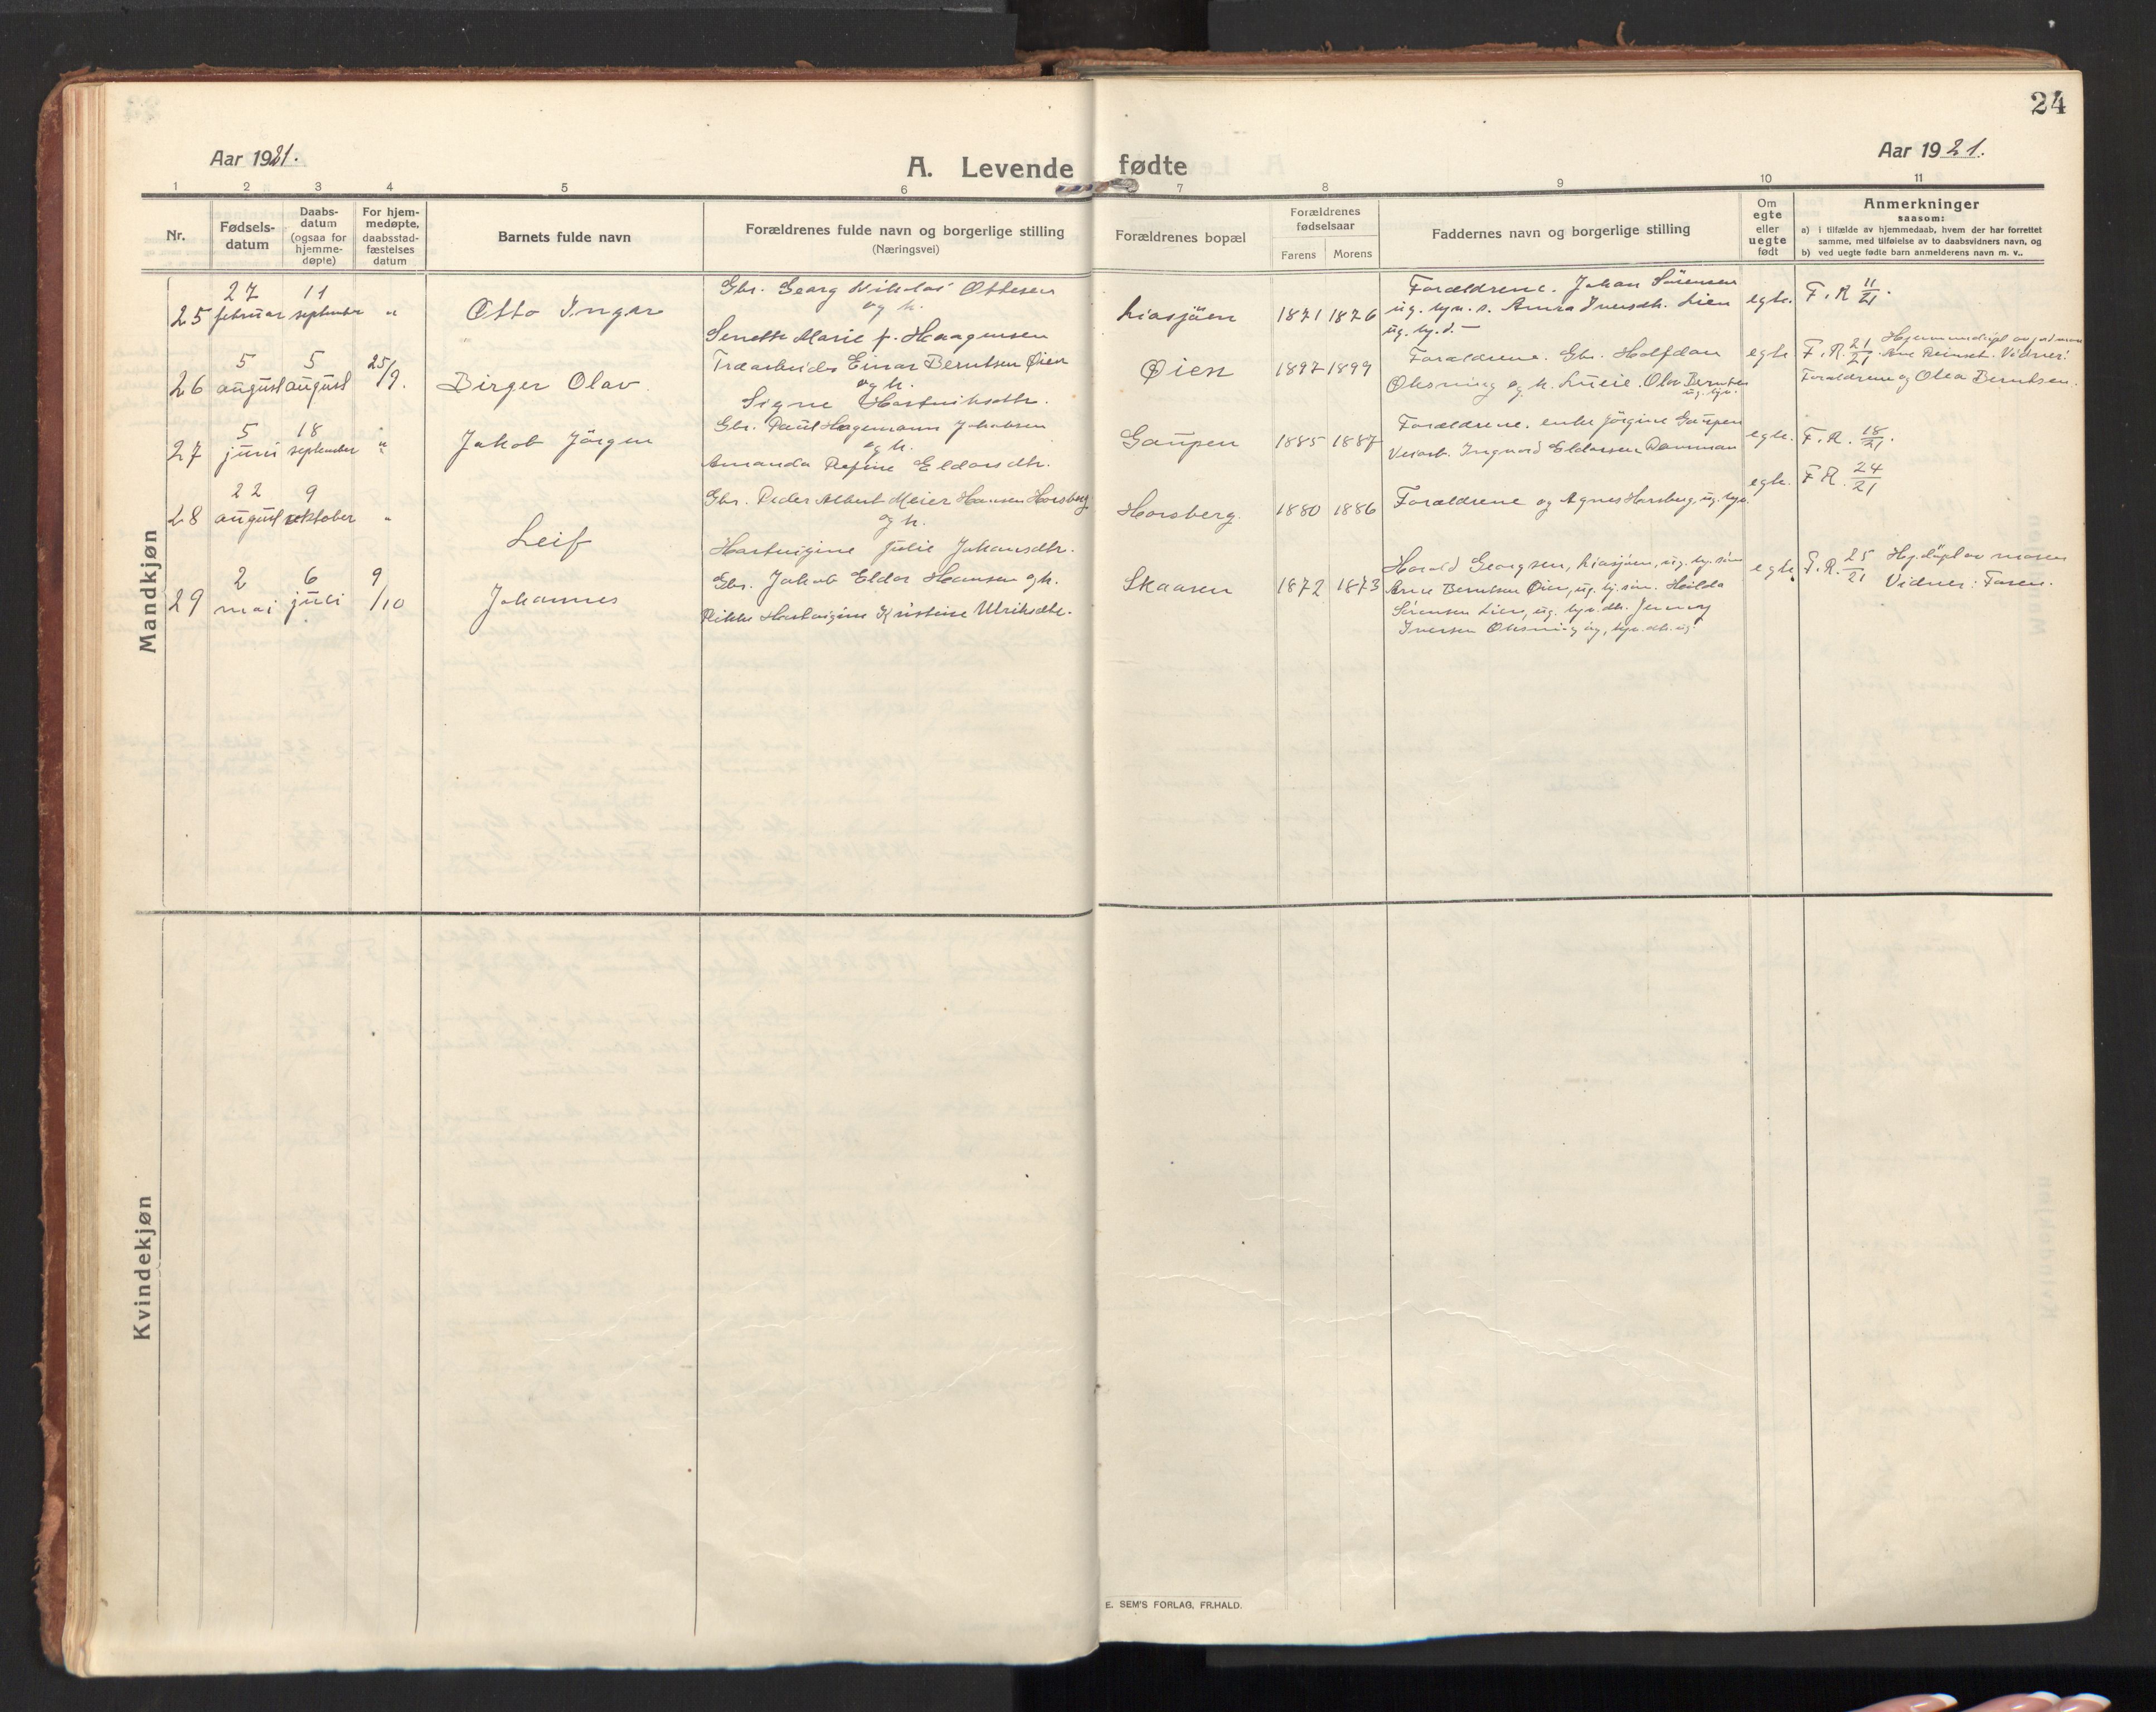 24
Aar 1921.
A. Levende fødte
Aar 1921.
1 2 3 4 5 6 7 8 9 10 11
Nr.
Fødsels-
datum
Daabs-
datum
(ogsaa for
hjemme-
døpte)
For hjem-
medøpte,
daabsstad-
fæstelses
datum
Barnets fulde navn
Forældrenes fulde navn og borgerlige stilling
(Næringsvei)
Forældrenes bopæl
Forældrenes
fødselsaar
Farens Morens
Faddernes navn og borgerlige stilling
Om
egte
eller
uegte
født
Anmerkninger
saasom:
a) i tilfælde av hjemmedaab, hvem der har forrettet
samme, med tilføielse av to daabsvidners navn, og
b) ved uegte fødte barn anmelderens navn m. v..
Mandkjøn
25
27
februar
11
september
"
Otto Ingar
Gbr. Georg Nikolai Ottesen
og h.
Senette Marie f. Haagensen
Liasjöen
1871 1876
Forældrene. Johan Sörensen
ug. gyn. s. Anna Iversdtr. Lien
ug. gy. d. —
egte.
F. R. 11/21.
26
5
august
5
august
25/9.
Birger Olav.
Træarbeider Einar Berntsen Øien
og h.
Signe Hartviksdtr.
Øien
1897 1899
Forældrene. Gbr. Halfdan
Oksning og h. Lucie. Olav Berntsen
ug. gyn.
egte
F. R. 21/21. Vidner:
Forældrene og Olea Berntsen.
27
5
juni
18
september
"
Jakob Jörgen
Gbr. Paul Hagemann Jakobsen
og h.
Amanda Regine Eldorsdtr.
Gaupen
1885 1887
Forældrene. enke Jörgine Gaupen
Veiarb. Ingvard Eldorsen
egte.
F. R. 18/21.
28
22
august
9
oktober
"
Leif
Gbr. Peder Albert Meier Hansen Horsberg
og h.
Hartvigine Julie Johansdtr.
Horsberg.
1880 1886
Forældrene og Agnes Horsberg, ug. gyn.
egte.
F R. 24/21
29
2
mai
6
juli
9/10
Johannes
Gbr. Jakob Eldor Hansen og h.
Rikke Hartvigine Kristine Ulriksdtr.
Skaaren
1872 1873
Harald Georgsen, Liasjöen, ug. gy. sön
Arne Berntsen Øien, ug. gy. sön. Hilda
Sörensen Lien, ug. gyn. dtr. Jenny
Iversen Oksning ug, gyn. dtr. ug.
egte.
F. R. 25/21 Hj. döpt av moren
Vidner: Faren.
Kvindekjøn
E. SEM'S FORLAG, FR.HALD.